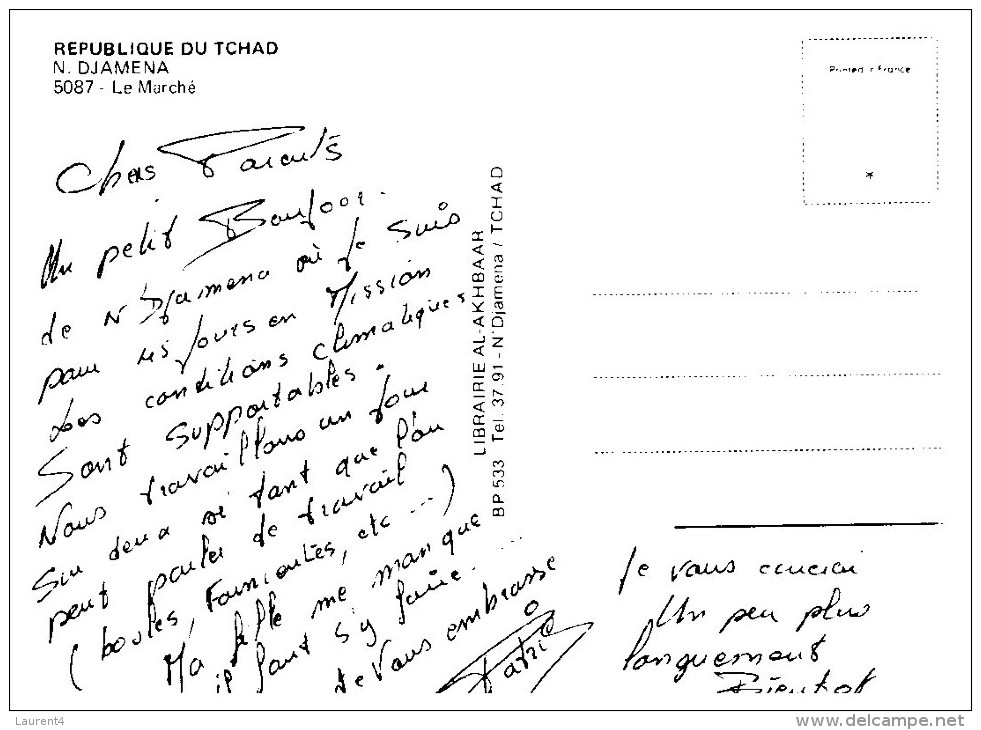 REPUBLIQUE DU TCHAD
N. DJAMENA
5087 - Le Marché
Printed in France
*
Chers Parents
Un petit Bonjour
de N'Djamena où je suis
pour jours en Mission
Les conditions climatiques
Sont supportables.
Nous travaillons un jour
Sur deux si tant que l'on
peut parler de travail
(boules, etc...)
Ma fille me manque
il faut s'y faire.
Je vous embrasse
Patrick
LIBRAIRIE AL-AKHBAAR
BP 533 Tel. 37.91 - N'Djamena / TCHAD
Je vous
Un peu plus
longuement
Bientot
Laurent4
www.delcampe.net